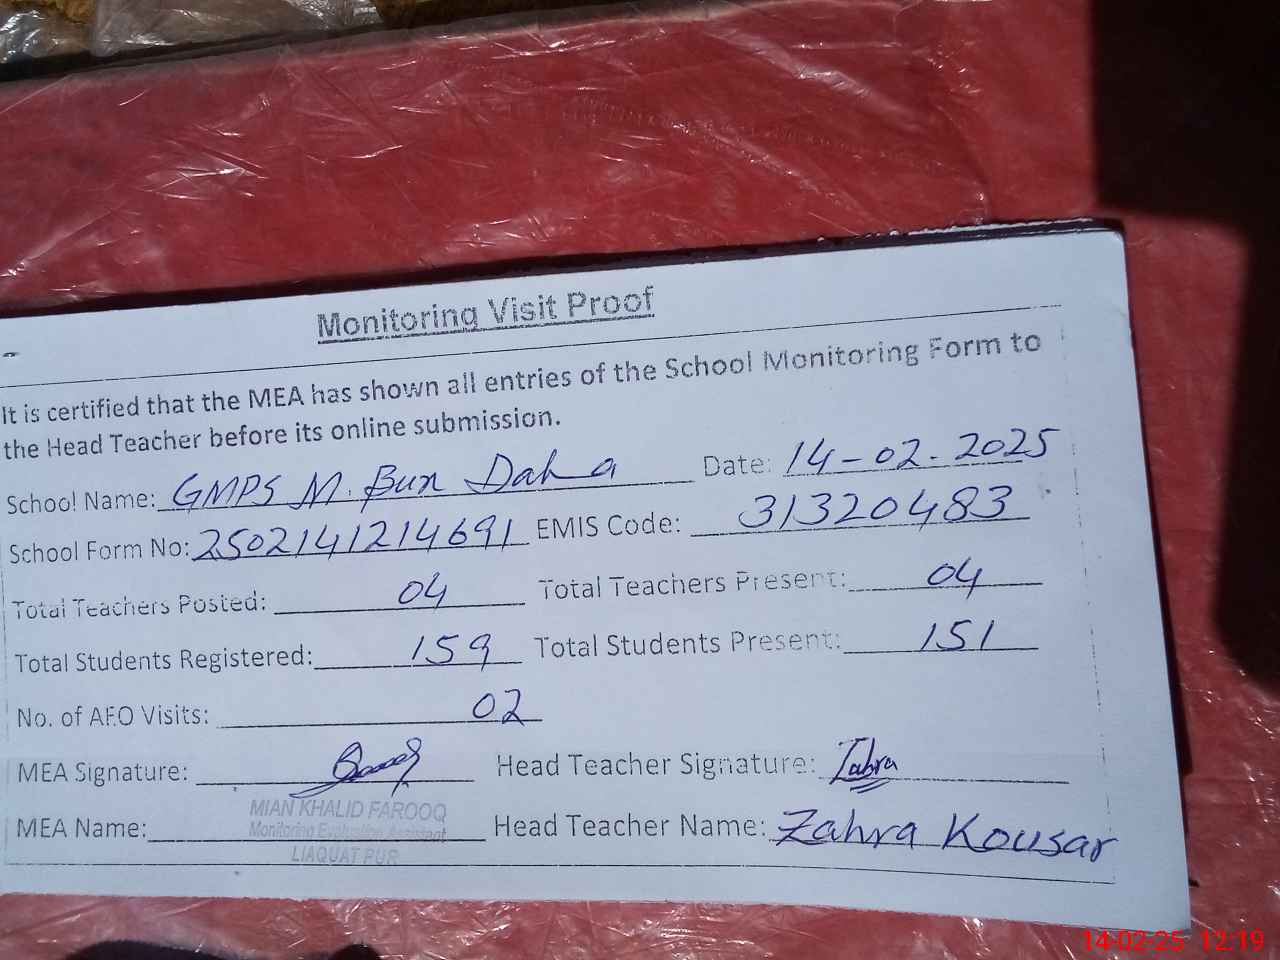 Monitoring Visit Proof
It is certified that the MEA has shown all entries of the School Monitoring Form to
the Head Teacher before its online submission.
School Name: GMPS M. Bux Daha Date: 14-02-2025
School Form No: 2502141214691 EMIS Code: 31320483
Total Teachers Posted: 04 Total Teachers Present: 04
Total Students Registered: 159 Total Students Present: 151
No. of AEO Visits: 02
MEA Signature: Head Teacher Signature: Zahra
MIAN KHALID FAROOQ
MEA Name: Monitoring Evaluation Assistant Head Teacher Name: Zahra Kousar
LIAQUAT PUR
14-02-25 12:19